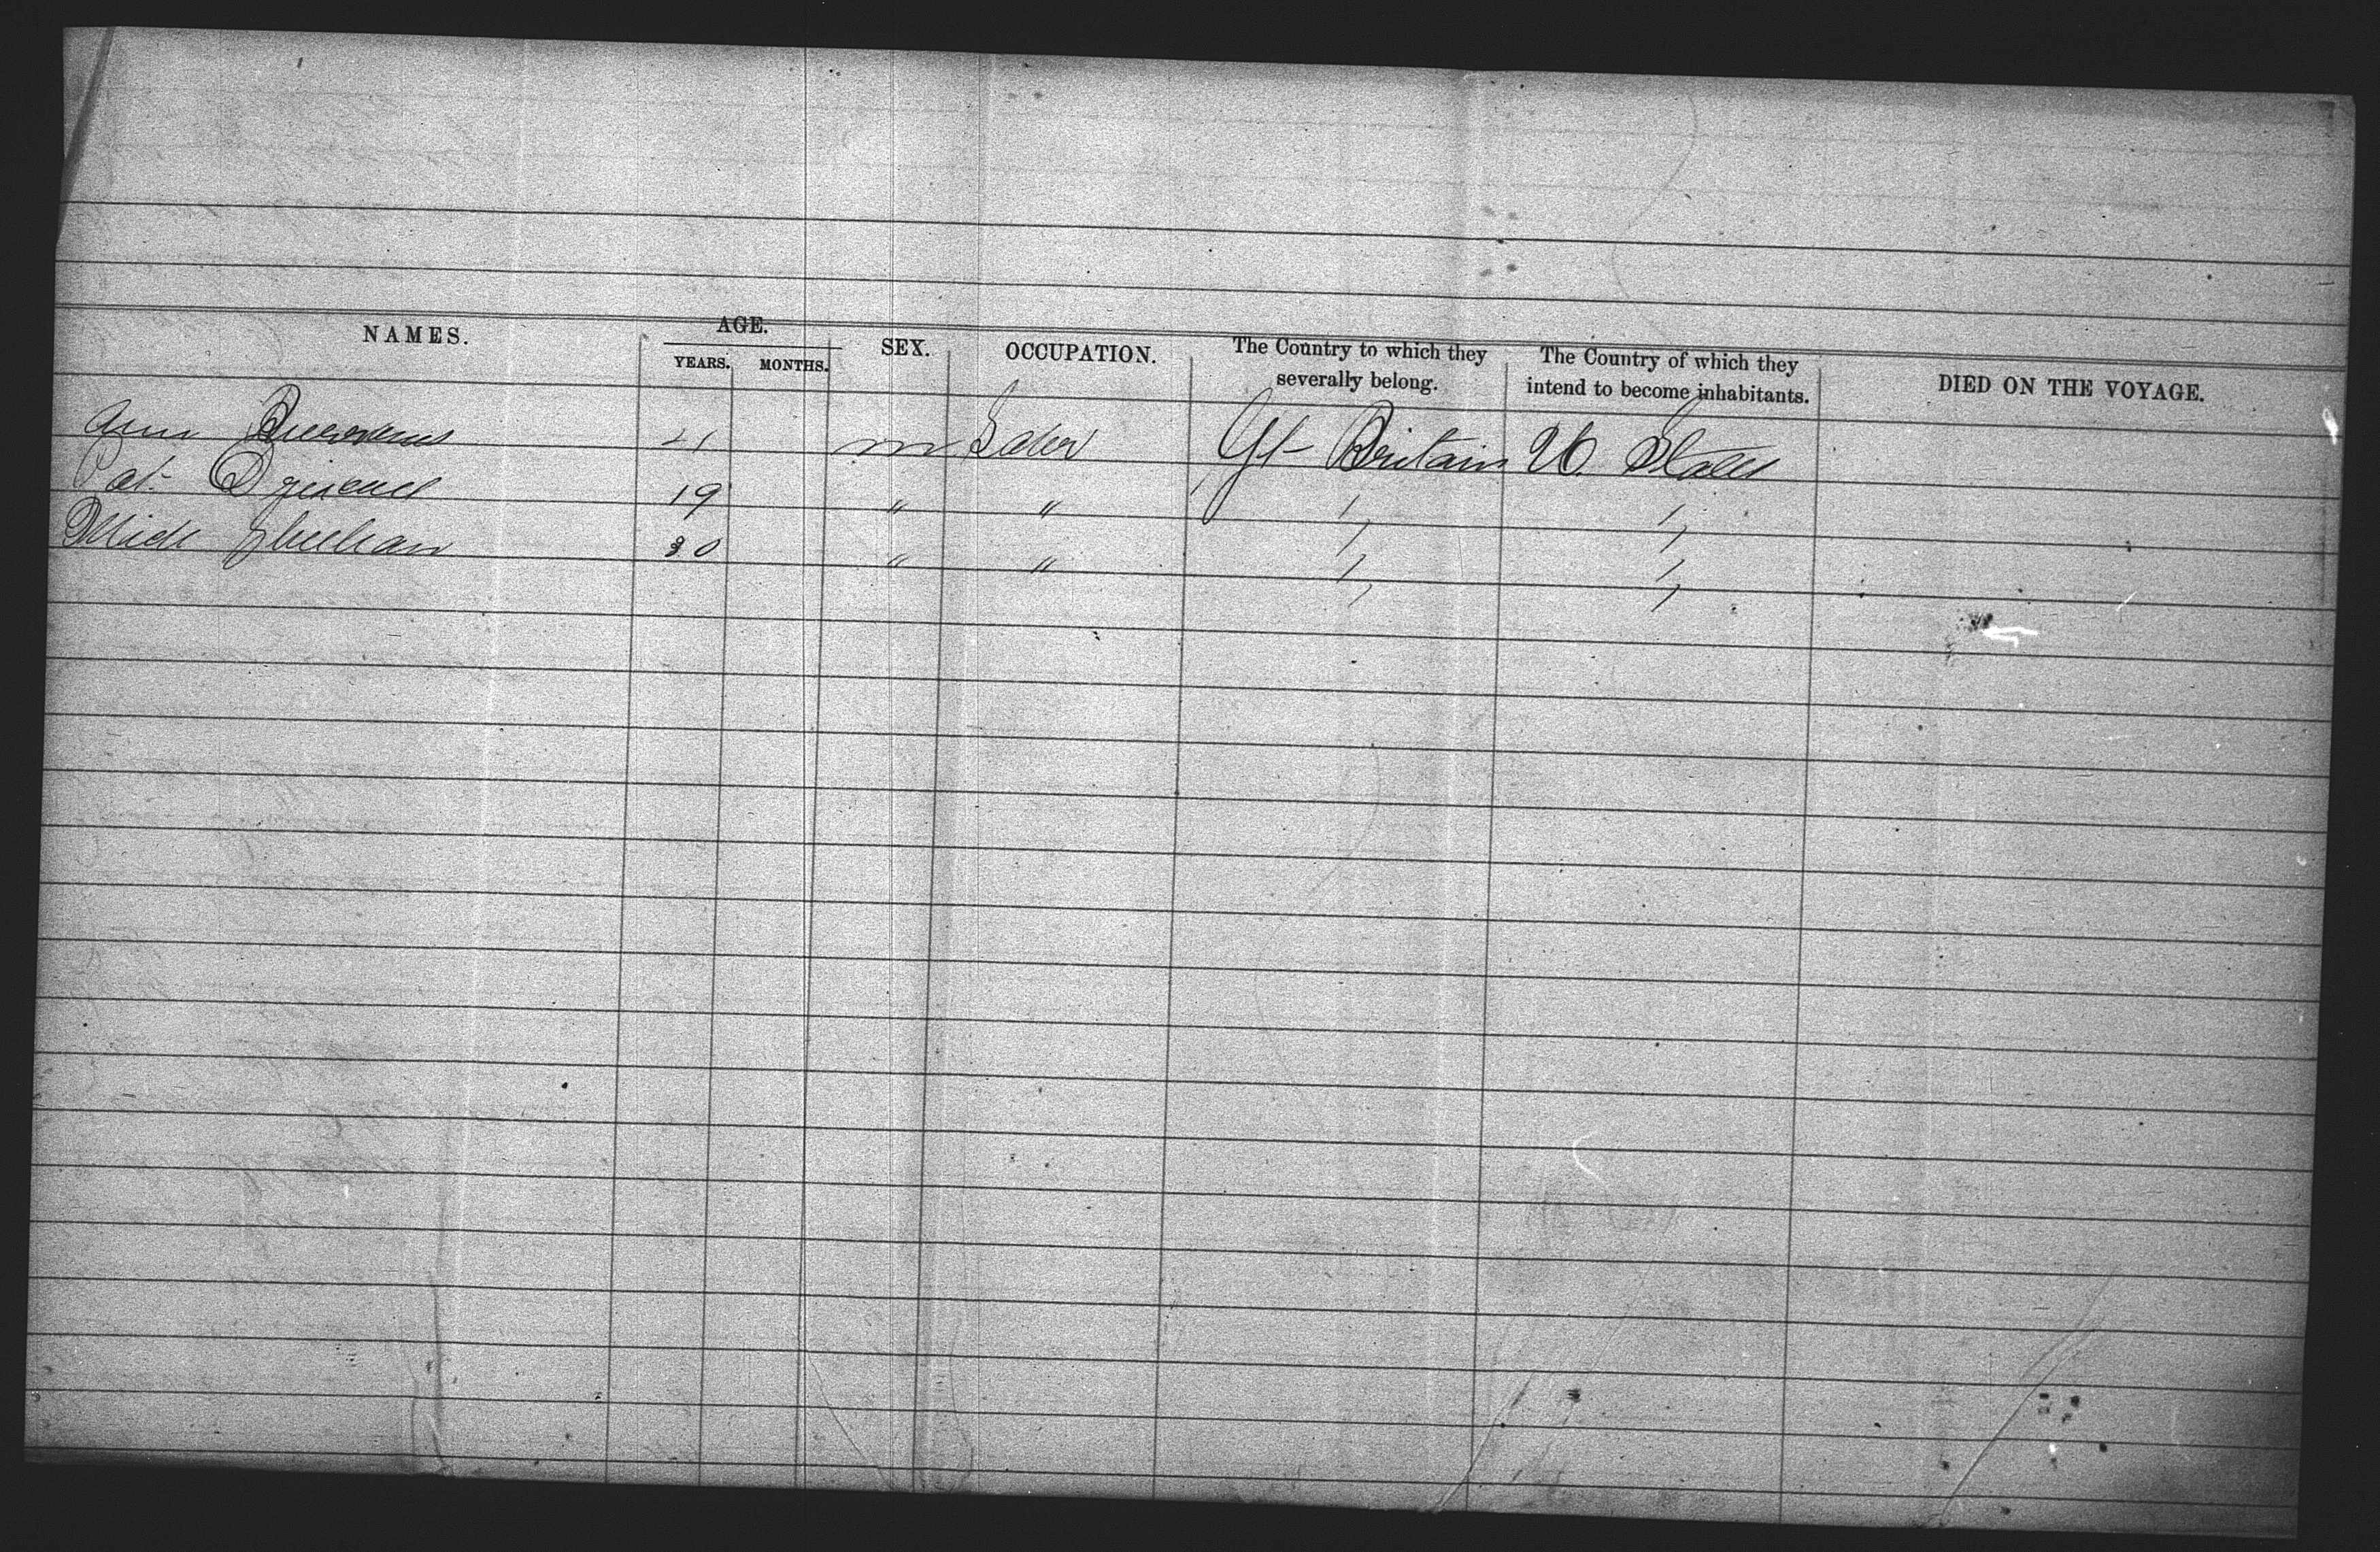 NAMES. AGE. SEX. OCCUPATION. The Country to which they severally belong. The Country of which they intend to become inhabitants. DIED ON THE VOYAGE.
YEARS. MONTHS.
Ann 21 m Labor Gt Britain U. States
Pat. 19 " " " "
Mich Sheehan 30 " " " "